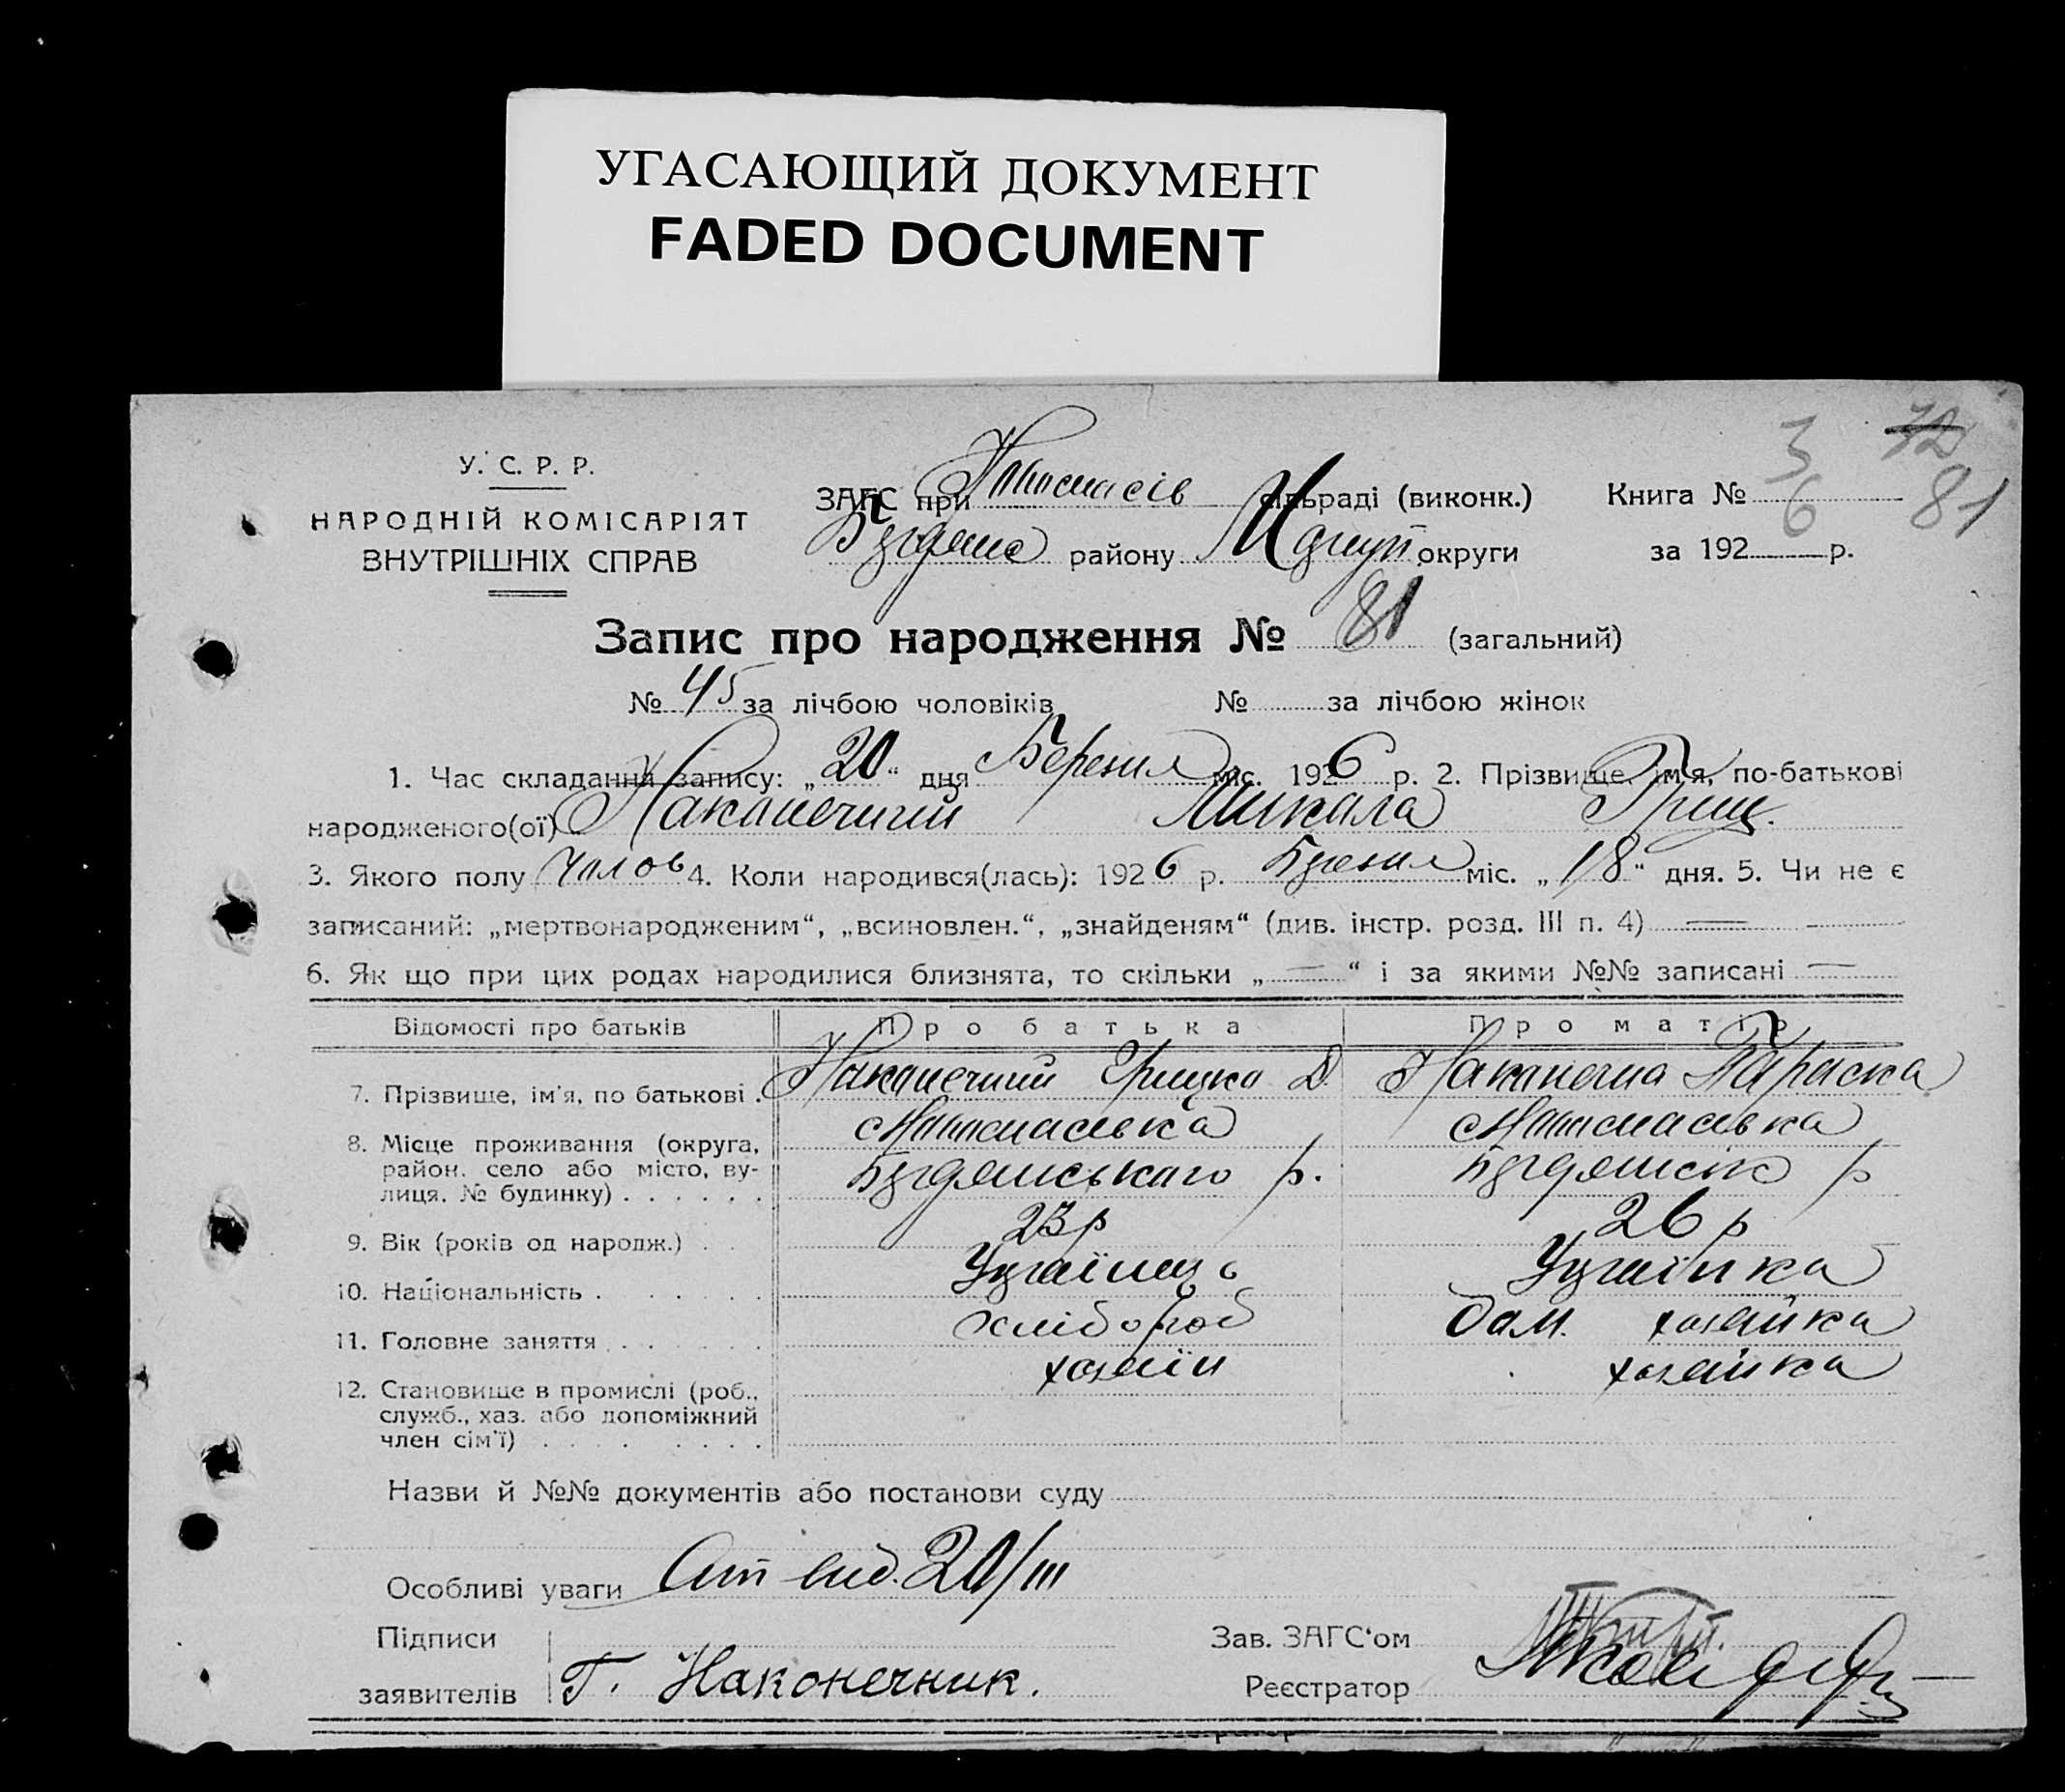 УГАСАЮЩИЙ ДОКУМЕНТ
FADED DOCUMENT
У. С. Р. Р.
НАРОДНІЙ КОМІСАРІЯТ
ВНУТРІШНІХ СПРАВ
ЗАГС при сільраді (виконк.)
району округи
Книга № 3
за 192 6 р.
72
81
Запис про народження № 81 (загальний)
№ 45 за лічбою чоловіків № за лічбою жінок
1. Час складання запису: „20“ дня Березня міс. 1926 р. 2. Прізвище, ім'я, по-батькові
народженого(ої) Наконечний Микола Гриц.
3. Якого полу Чолов 4. Коли народився(лась): 1926 р. Березня міс. „18“ дня. 5. Чи не є
записаний: „мертвонародженим“, „всиновлен.“, „знайденям“ (див. інстр. розд. III п. 4) —
6. Як що при цих родах народилися близнята, то скільки „—“ і за якими №№ записані —
Відомості про батьків Про батька Про матір
7. Прізвище, ім'я, по батькові . Наконечний Грицко Д. Наконечна Параска
8. Місце проживання (округа,
район, село або місто, ву-
лиця, № будинку) . . . . . . р. р
9. Вік (років од народж.) . . 23 р 26 р
10. Національність . . . . . . Українець Українка
11. Головне заняття . . . . . . хлібороб дом. хозяйка
12. Становище в промислі (роб., хозяїн хозяйка
служб., хаз. або допоміжний
член сім'ї) . . . . . . . .
Назви й №№ документів або постанови суду
Особливі уваги вид. 20/III
Підписи Зав. ЗАГС'ом
заявителів Г. Наконечник. Реєстратор